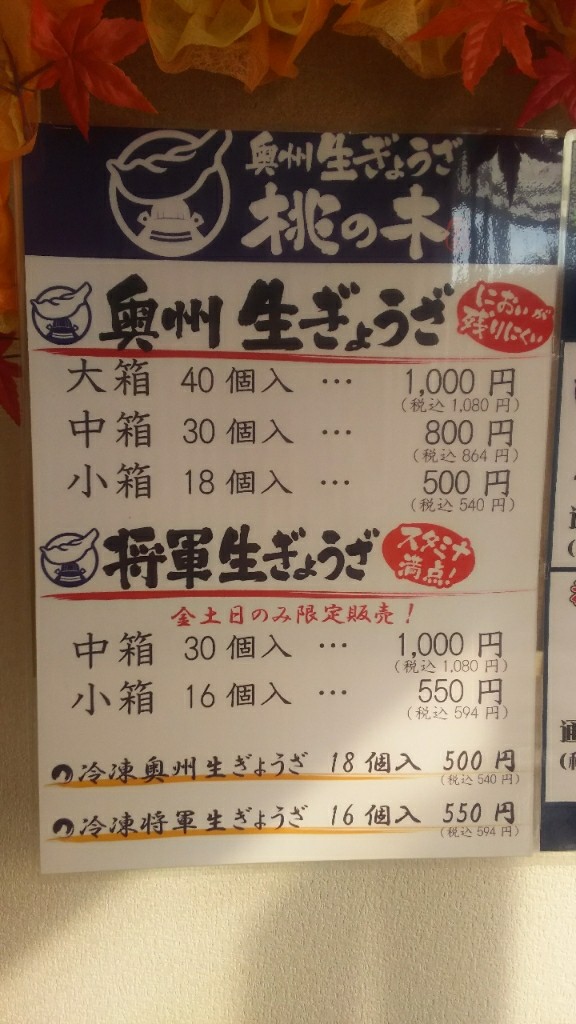 奥州生ぎょうざ
桃の木
奥州生ぎょうざ
においが
残りにくい
大箱 40個入 … 1,000円
(税込1,080円)
中箱 30個入 … 800円
(税込864円)
小箱 18個入 … 500円
(税込540円)
将軍生ぎょうざ
スタミナ
満点!
金土日のみ限定販売!
中箱 30個入 … 1,000円
(税込1,080円)
小箱 16個入 … 550円
(税込594円)
冷凍奥州生ぎょうざ 18個入 500円
(税込540円)
冷凍将軍生ぎょうざ 16個入 550円
(税込594円)